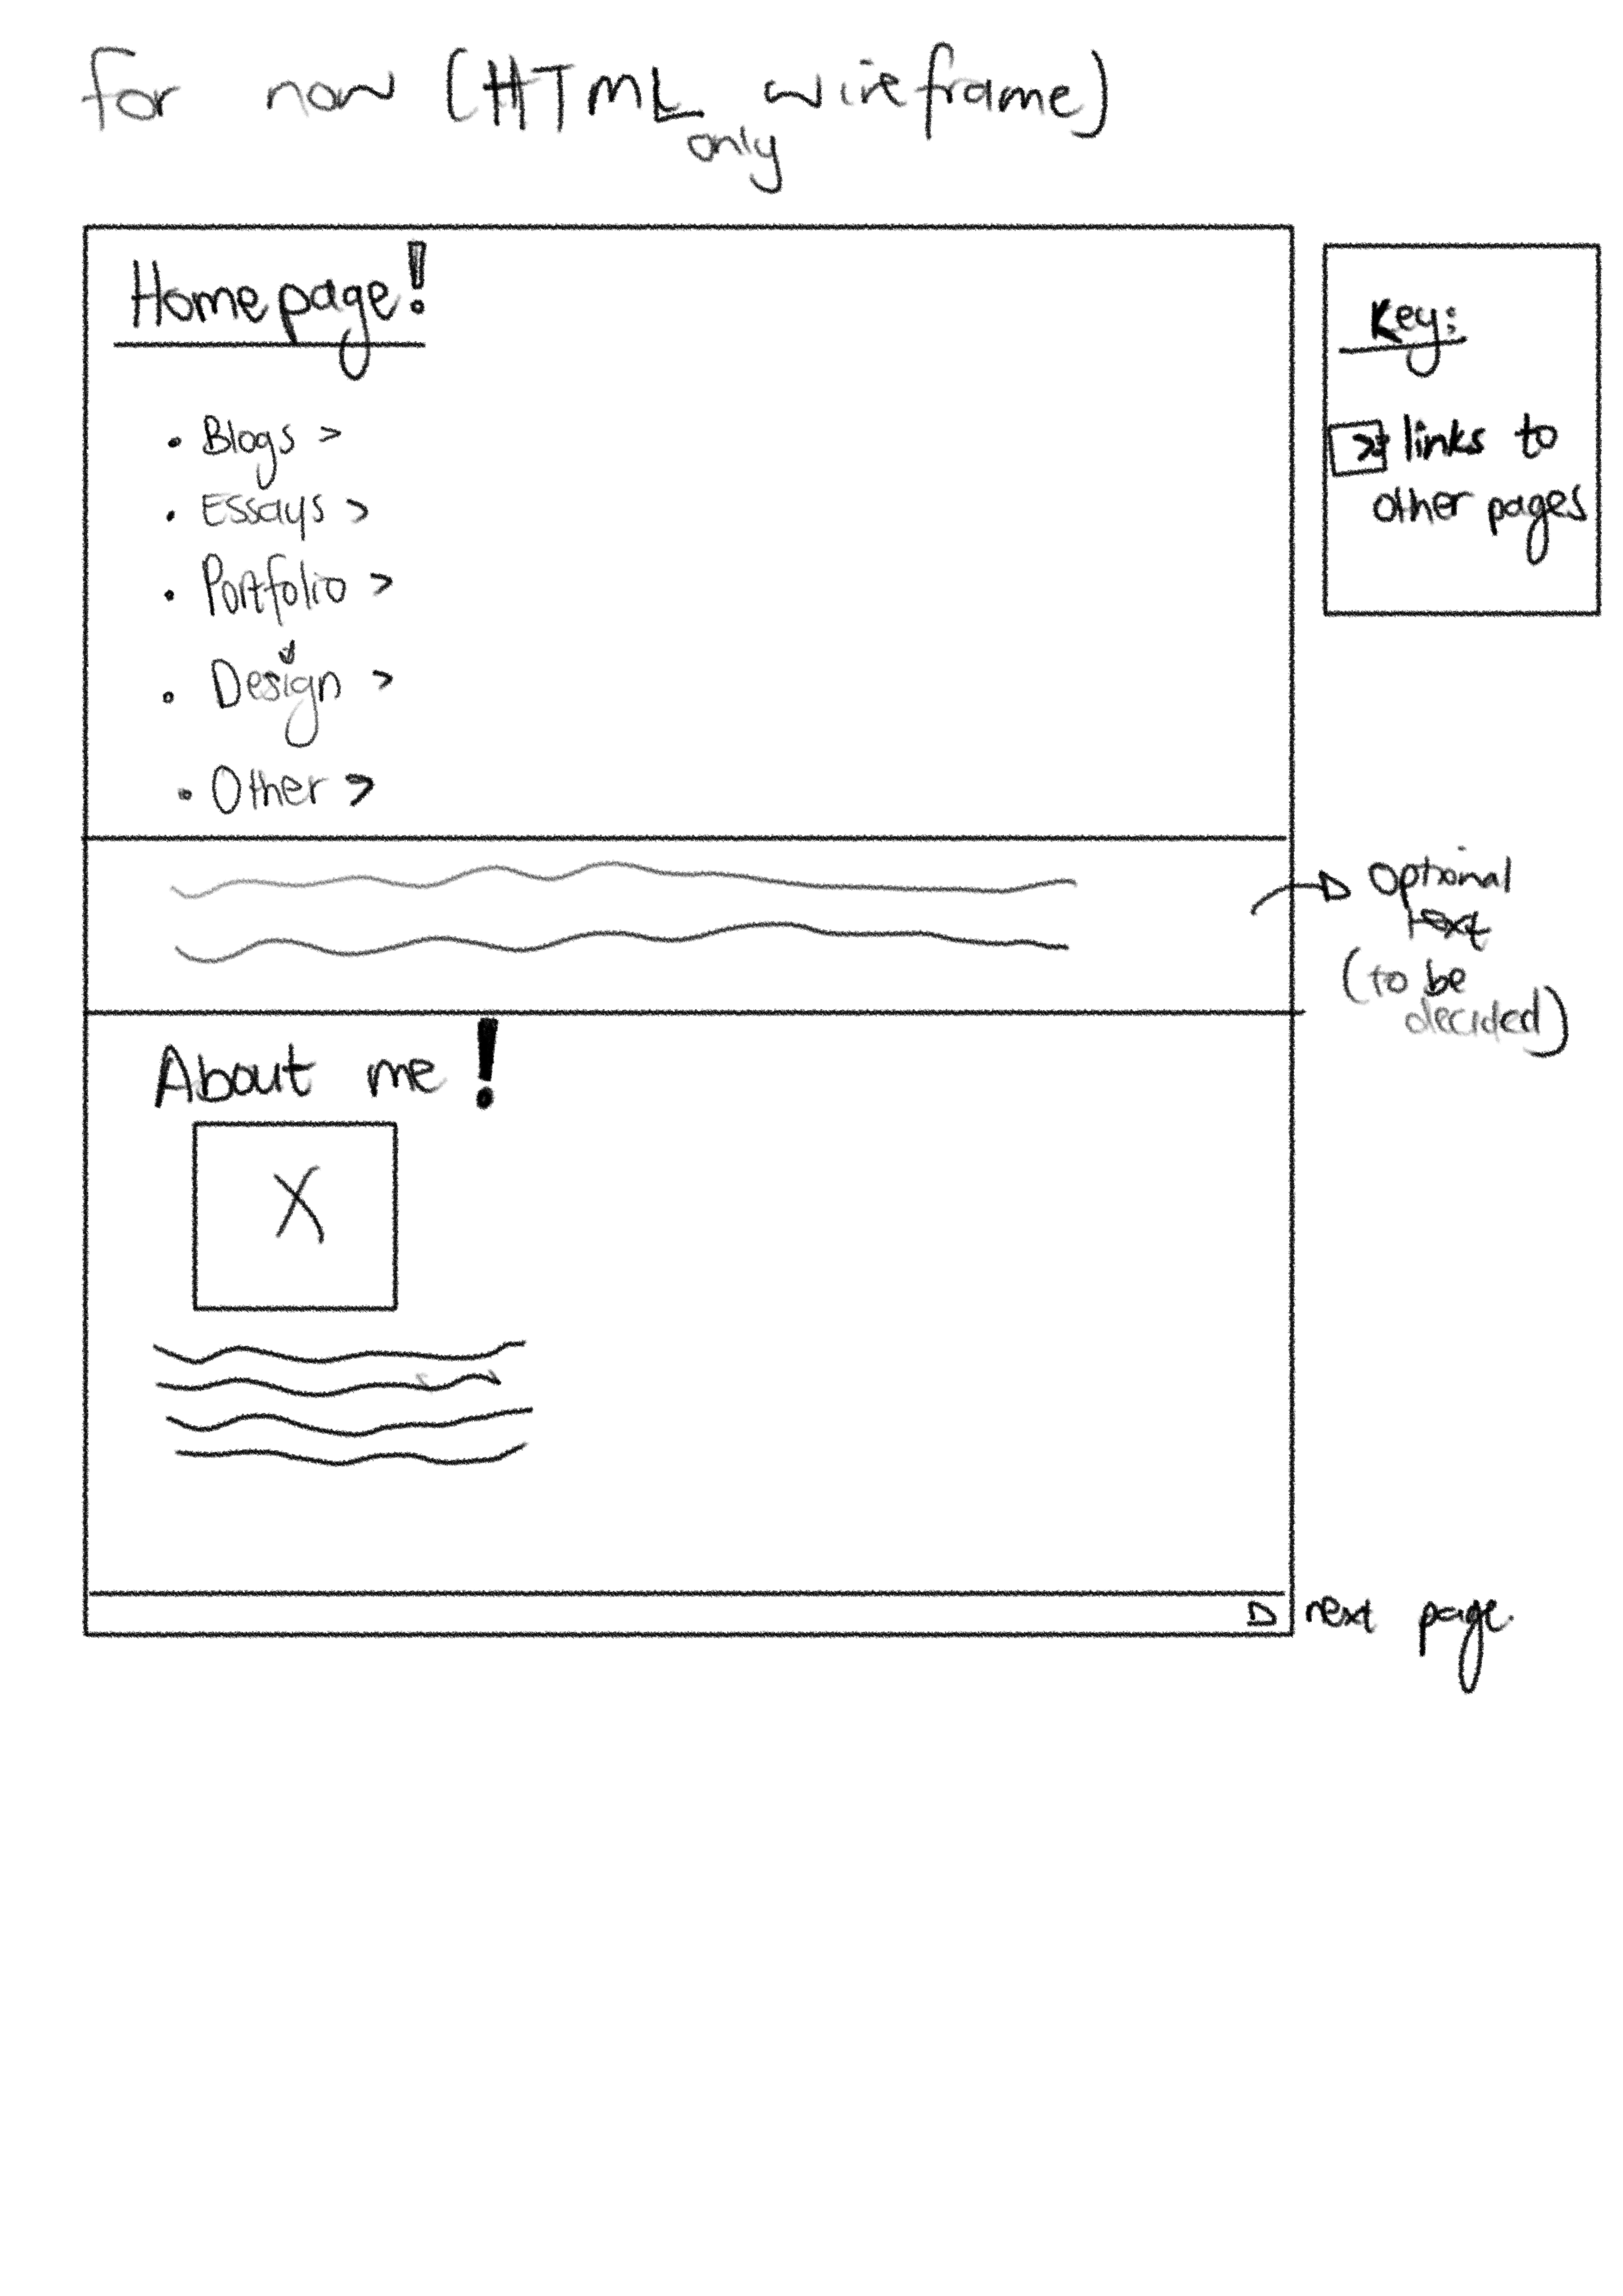 for now (HTML wireframe)
only
Homepage!
• Blogs >
• Essays >
• Portfolio >
• Design >
• Other >
Key:
> links to
other pages
Optional
text
(to be
decided)
About me!
X
next page.